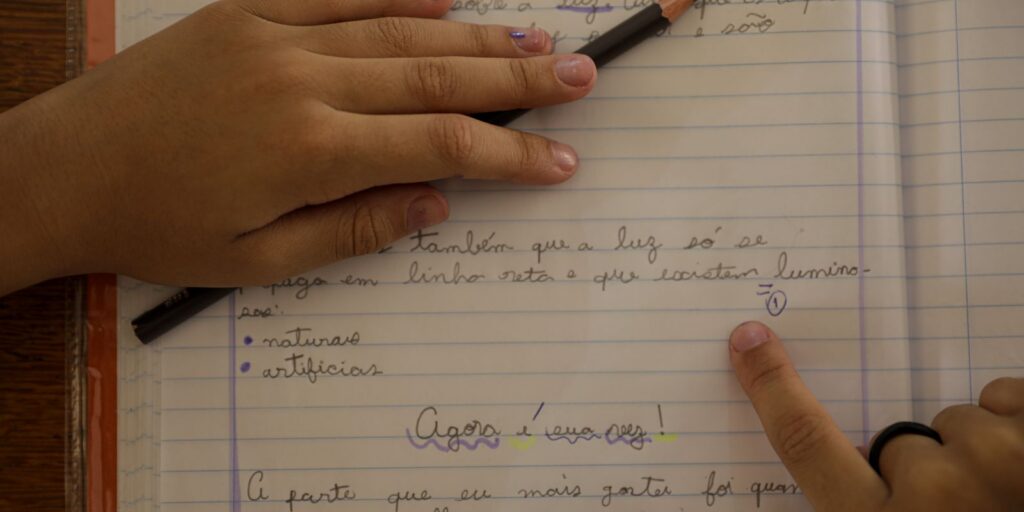 sobre a luz
e são
também que a luz só se
paga em linha reta e que existem lumino-
sas:
=
①
• naturais
• artificias
Agora é sua vez!
A parte que eu mais gostei foi quan